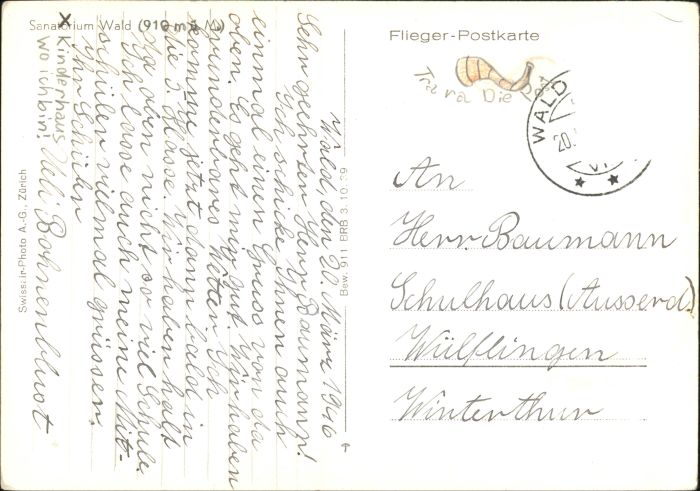 Sanatorium Wald (910 m ü. M.)
x Kinderhaus
wo ich bin!
Wald, den 20. März 1946
Sehr geehrter Herr Baumann!
Ich schicke Ihnen auch
einmal einen Gruss von da
oben. Es geht mir gut. Wir haben
wunderbares Wetter. Ich
komme jetzt dann bald in
die 2 Klasse. Wir haben halt
da oben nicht so viel Schule
Ich lasse auch meine Mit-
schüler vielmal grüssen.
Ihr Schüler
Ueli Bohnenblust
Swissair-Photo A.-G., Zürich
Bew. 911 BRB 3. 10. 39
Flieger-Postkarte
Tra ra Die Post
WALD
20.
VI
An
Herr Baumann
Schulhaus (Ausserd.)
Wülflingen
Winterthur